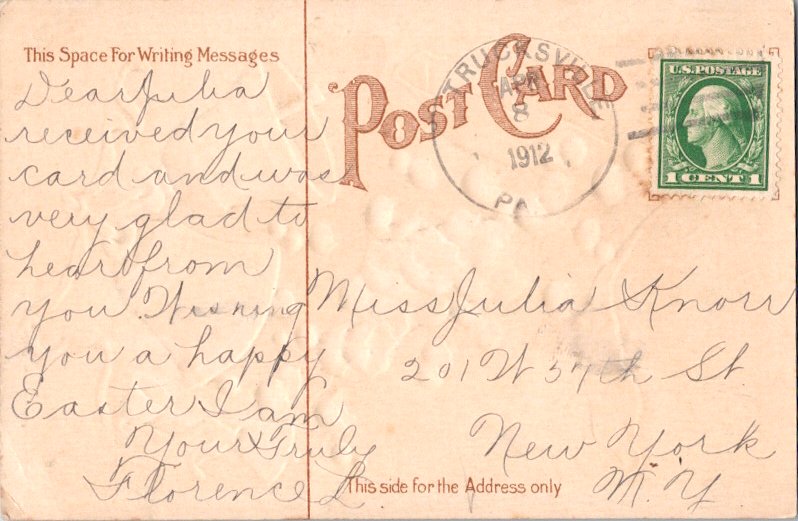 This Space For Writing Messages
Dear Julia
received your
card and was
very glad to
hear from
you Wishing
you a happy
Easter I am
Yours Truly
Florence L
POST CARD
TRUCKSVILLE
APR
8
1912
PA.
U.S. POSTAGE
1 CENT 1
Miss Julia Knorr
201 W 57th St
New York
N. Y
This side for the Address only